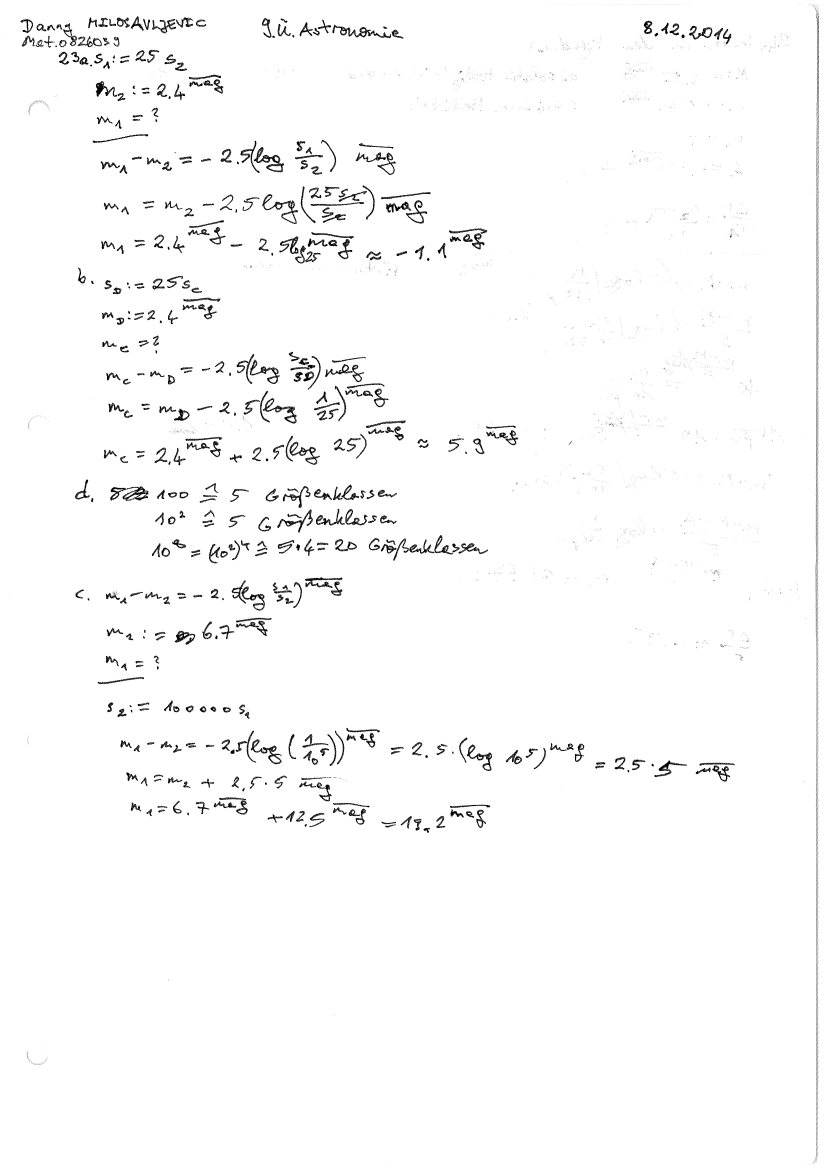 Danny MILOSAVLJEVIC 9.Ü. Astronomie 8.12.2014
Mat.0826039
23a. s₁ := 25 s₂
m₂ := 2.4^mag
m₁ = ?
m₁ - m₂ = - 2.5(log s₁/s₂) mag
m₁ = m₂ - 2.5 log(25 s₂/s₂) mag
m₁ = 2.4^mag - 2.5log25 mag ≈ -1.1^mag
b. s_D := 25 s_C
m_D := 2.4^mag
m_C = ?
m_C - m_D = - 2.5(log s_C/s_D) mag
m_C = m_D - 2.5(log 1/25)^mag
m_C = 2.4^mag + 2.5(log 25)^mag ≈ 5.9^mag
d. 100 ≙ 5 Größenklassen
10² ≙ 5 Größenklassen
10⁸ = (10²)⁴ ≙ 5·4 = 20 Größenklassen
c. m₁ - m₂ = - 2.5(log s₁/s₂)^mag
m₂ := 6.7^mag
m₁ = ?
s₂ := 100000 s₁
m₁ - m₂ = - 2.5(log (1/10⁵))^mag = 2.5·(log 10⁵)^mag = 2.5·5 mag
m₁ = m₂ + 2,5·5 mag
m₁ = 6.7^mag + 12.5^mag = 19.2^mag